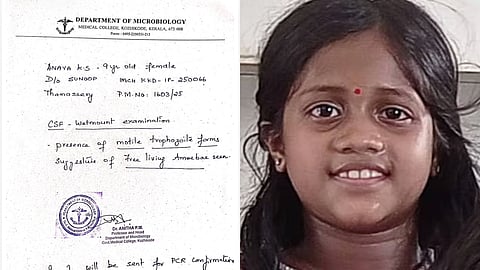 DEPARTMENT OF MICROBIOLOGY
MEDICAL COLLEGE, KOZHIKODE, KERALA, 673 008
ANAYA K.S - 9 yr old female
D/o SUNOOP MCH KKD-IP-250066
Thamassery P.M.No: 1603/25
CSF - Wetmount examination
- presence of motile trophozoite forms
suggestive of Free living Amoebae seen.
Dr. ANITHA P.M.
Professor and Head
Department of Microbiology
Govt.Medical College, Kozhikode
will be sent for PCR confirmation